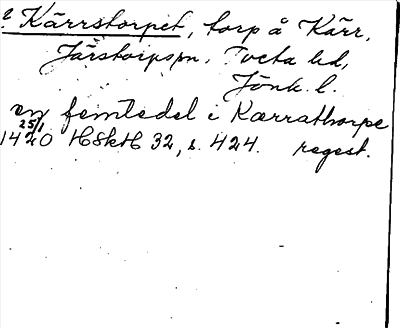 ? Kärrstorpet, torp å Kärr,
Järstorps sn, Tveta hd,
Jönk. l.
en femtedel i Kærrathorpe
25/1 1420 HSkH 32, s. 424. regest.